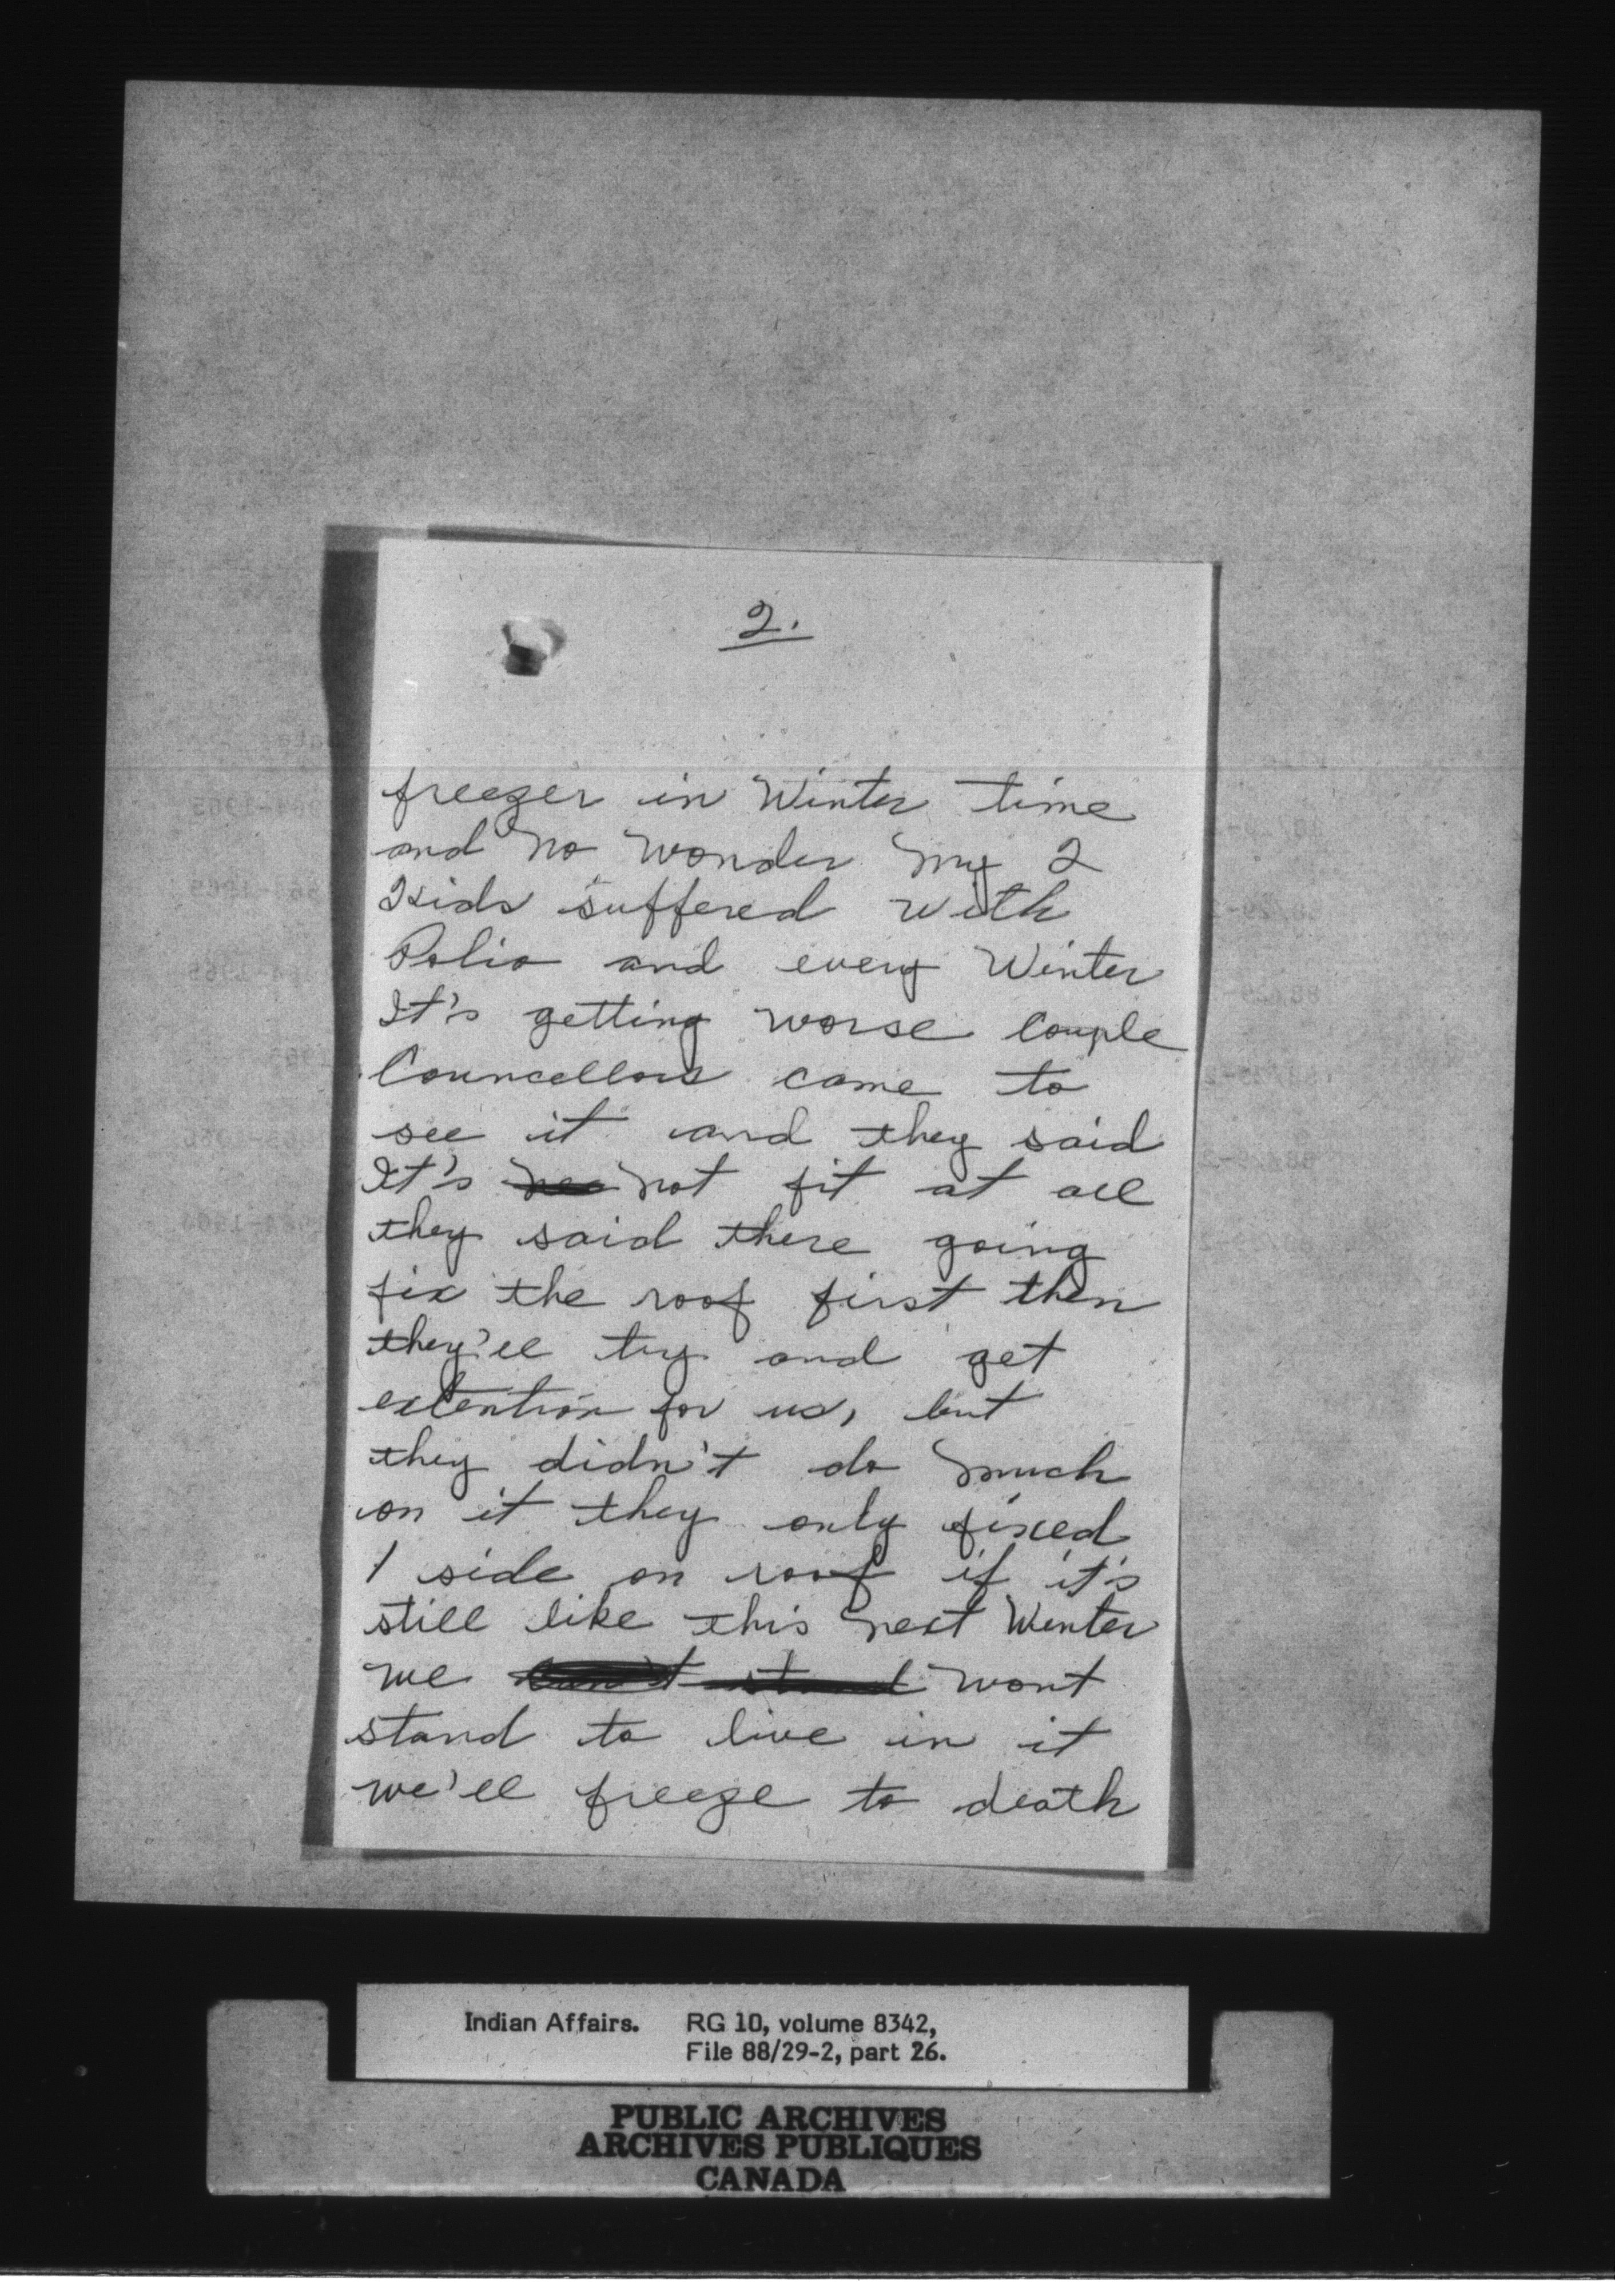 2.
freezer in Winter time
and no wonder my 2
Kids suffered with
Polio and every Winter
It's getting worse Couple
Councellors came to
see it and they said
It's not fit at all
they said there going
fix the roof first then
they'll try and get
extention for us, but
they didn't do much
on it they only fixed
1 side on roof if it's
still like this next Winter
we can't stand wont
stand to live in it
we'll freeze to death
Indian Affairs. RG 10, volume 8342,
File 88/29-2, part 26.
PUBLIC ARCHIVES
ARCHIVES PUBLIQUES
CANADA